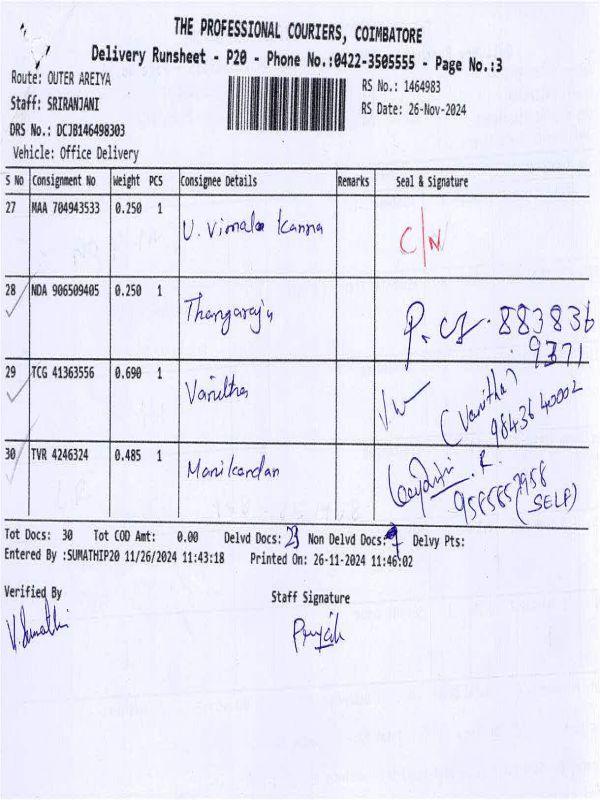 THE PROFESSIONAL COURIERS, COIMBATORE
Delivery Runsheet - P20 - Phone No.:0422-3505555 - Page No.:3
Route: OUTER AREIYA
RS No.: 1464983
Staff: SRIRANJANI
RS Date: 26-Nov-2024
DRS No.: DCJB146498303
Vehicle: Office Delivery
S No Consignment No Weight PCS Consignee Details Remarks Seal & Signature
27 MAA 704943533 0.250 1 U. Vimala Kanna C/N
28 NDA 906509405 0.250 1 Thangaraju 883836
9371
29 TCG 41363556 0.690 1 Vanitha (Vanitha)
98436 40002
30 TVR 4246324 0.485 1 Manikandan
9585857958
(SELF)
Tot Docs: 30 Tot COD Amt: 0.00 Delvd Docs: 23 Non Delvd Docs: 7 Delvy Pts:
Entered By :SUMATHIP20 11/26/2024 11:43:18 Printed On: 26-11-2024 11:46:02
Verified By Staff Signature
V. Sumathi